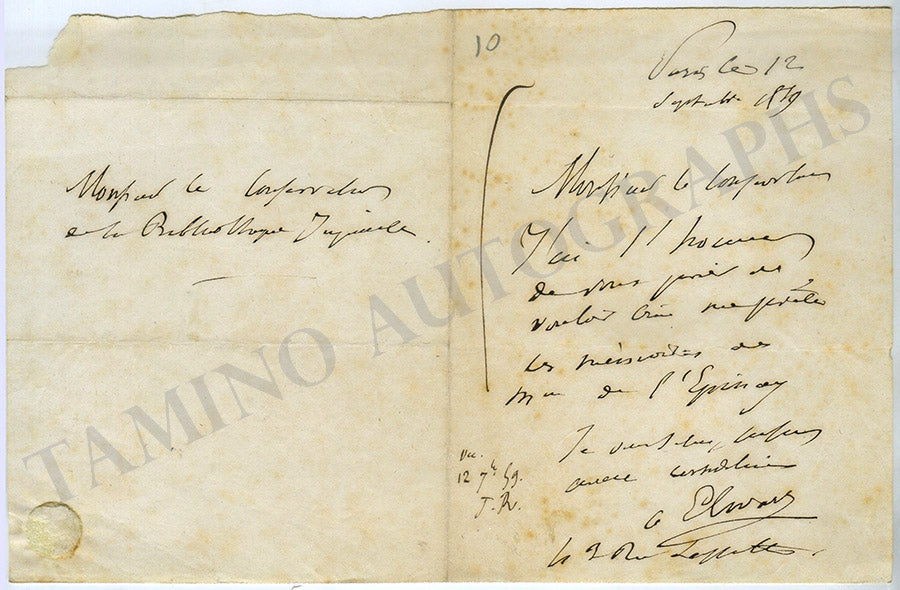 10
Paris le 12
Septembre 1859
Monsieur le Conservateur
de la Bibliothèque Impériale.
Monsieur le Conservateur
J'ai l'honneur
de vous prier de
vouloir bien me prêter
les mémoires de
Mme de l'Epinay
Je vous
avec
a Elwart
43 Rue Laffitte.
Vu.
12 7bre 59.
TAMINO AUTOGRAPHS